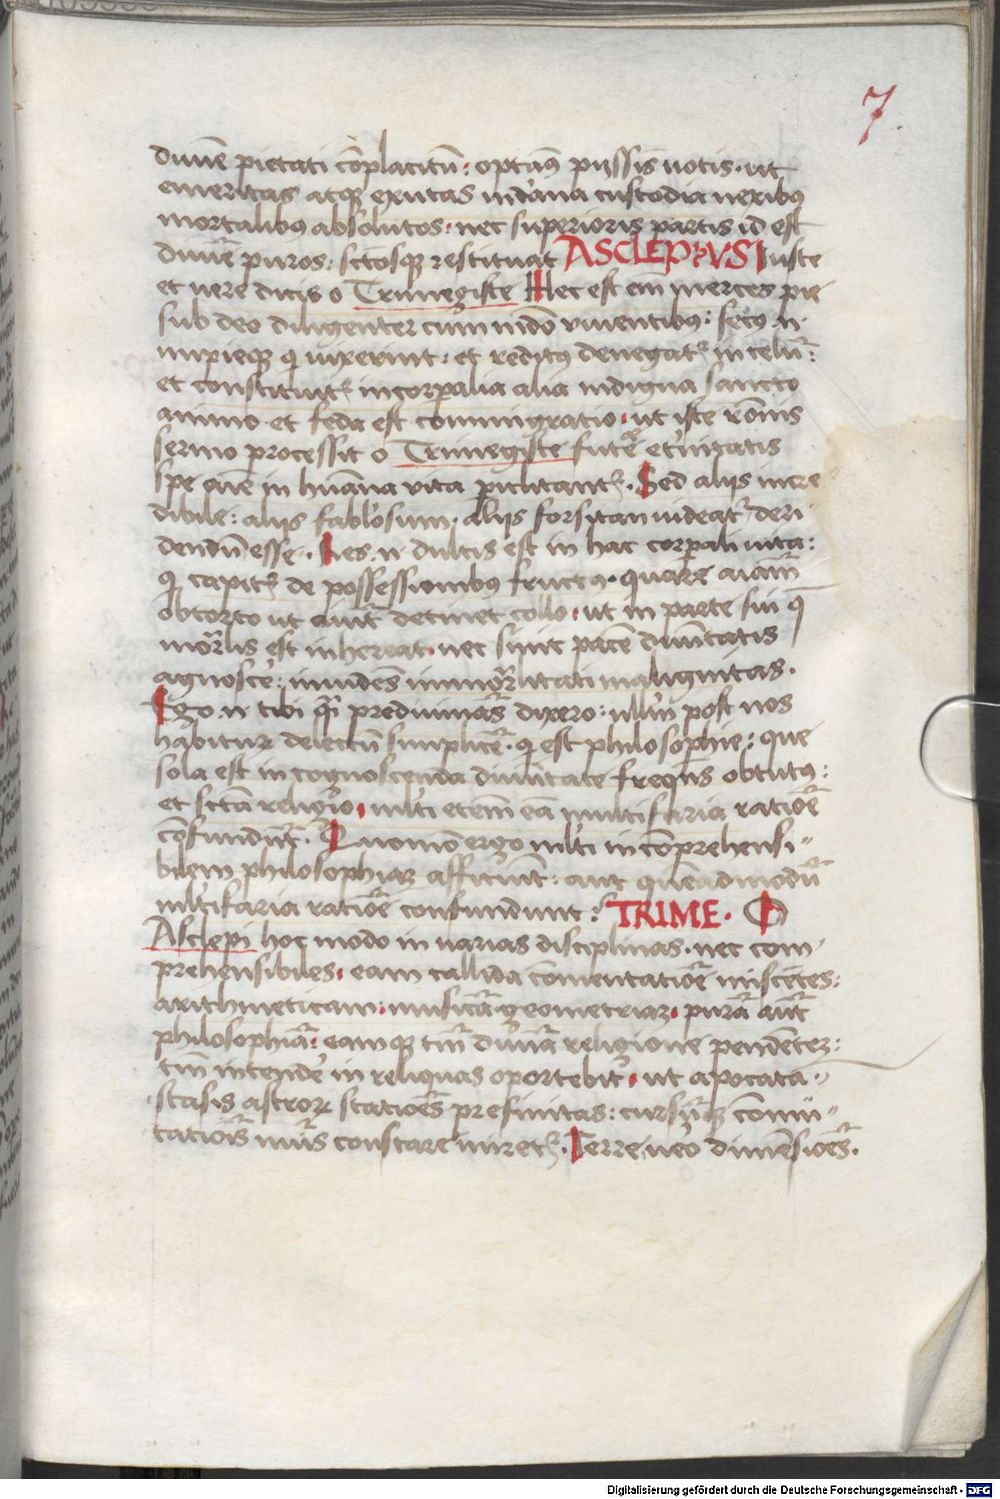 7.
diuinę pietati cōplacitū: optam⁹ pijssis uotis. ut
emeritas atqꝫ exutas mūdana custodia nexibus
mortalibus absolutos. nec superioris partis id est
diuinę puros: sctosqꝫ restituat ASCLEPIUS Iuste
et uere dicis o Trimegiste Hec est em̄ merces pie
sub deo diligenter cum mūdo viuentibus: sec⁹ .n.
impieqꝫ qͥ uixerint: et reditus denegatʳ in celū:
et constituitʳ in corporalia alia indigna sancto
animo et feda est commigratio. ut iste rōnis
sermo processit o Trimegiste future eternitatis
spe aīe in humana vita periclitantʳ. Sed aliis incre
dibile: aliis fabulosum. aliis forsitan uideatʳ deri
dendū esse. Res .n. dulcis est in hac corporali uita:
qͥ capitʳ de possessionibus fructus. quare aīam
obtorto ut aiūt detinet collo. ut in parte sui q̄
mortalis est inhereat. nec sinit partē diuinitatis
agnoscere: inuidens immortalitati malignitas.
Ego .n. tibi quasi prediuinans dixero: nullum post nos
habiturꝝ delectū simplicē. qͥ est philosophie: que
sola est in cognoscenda diuinitate frequens obtutus:
et sctā religio. multi etenim eā multifaria ratiōe
cōfundunt. Quomodo ergo multi incōprehensi
bilem philosophiam efficiunt: aut quēadmodū
multifaria ratiōe confundunt? TRIME. O
Asclepi hoc modo in uarias disciplinas. nec com
prehensibiles. eam callida cōmentatiōe miscētes:
arithmeticam. musicā. geometriam. purā aūt
philosophiā: eamqꝫ tm̄ diuinā religione pendētem:
tm̄ intendē in reliquas oportebit. ut apocata
stasis astroꝝ statiōes prefinitas: cursūqꝫ cōmu
tatiōis numeris constare miretʳ. Terre uero dimēsiōes.
Digitalisierung gefördert durch die Deutsche Forschungsgemeinschaft - DFG